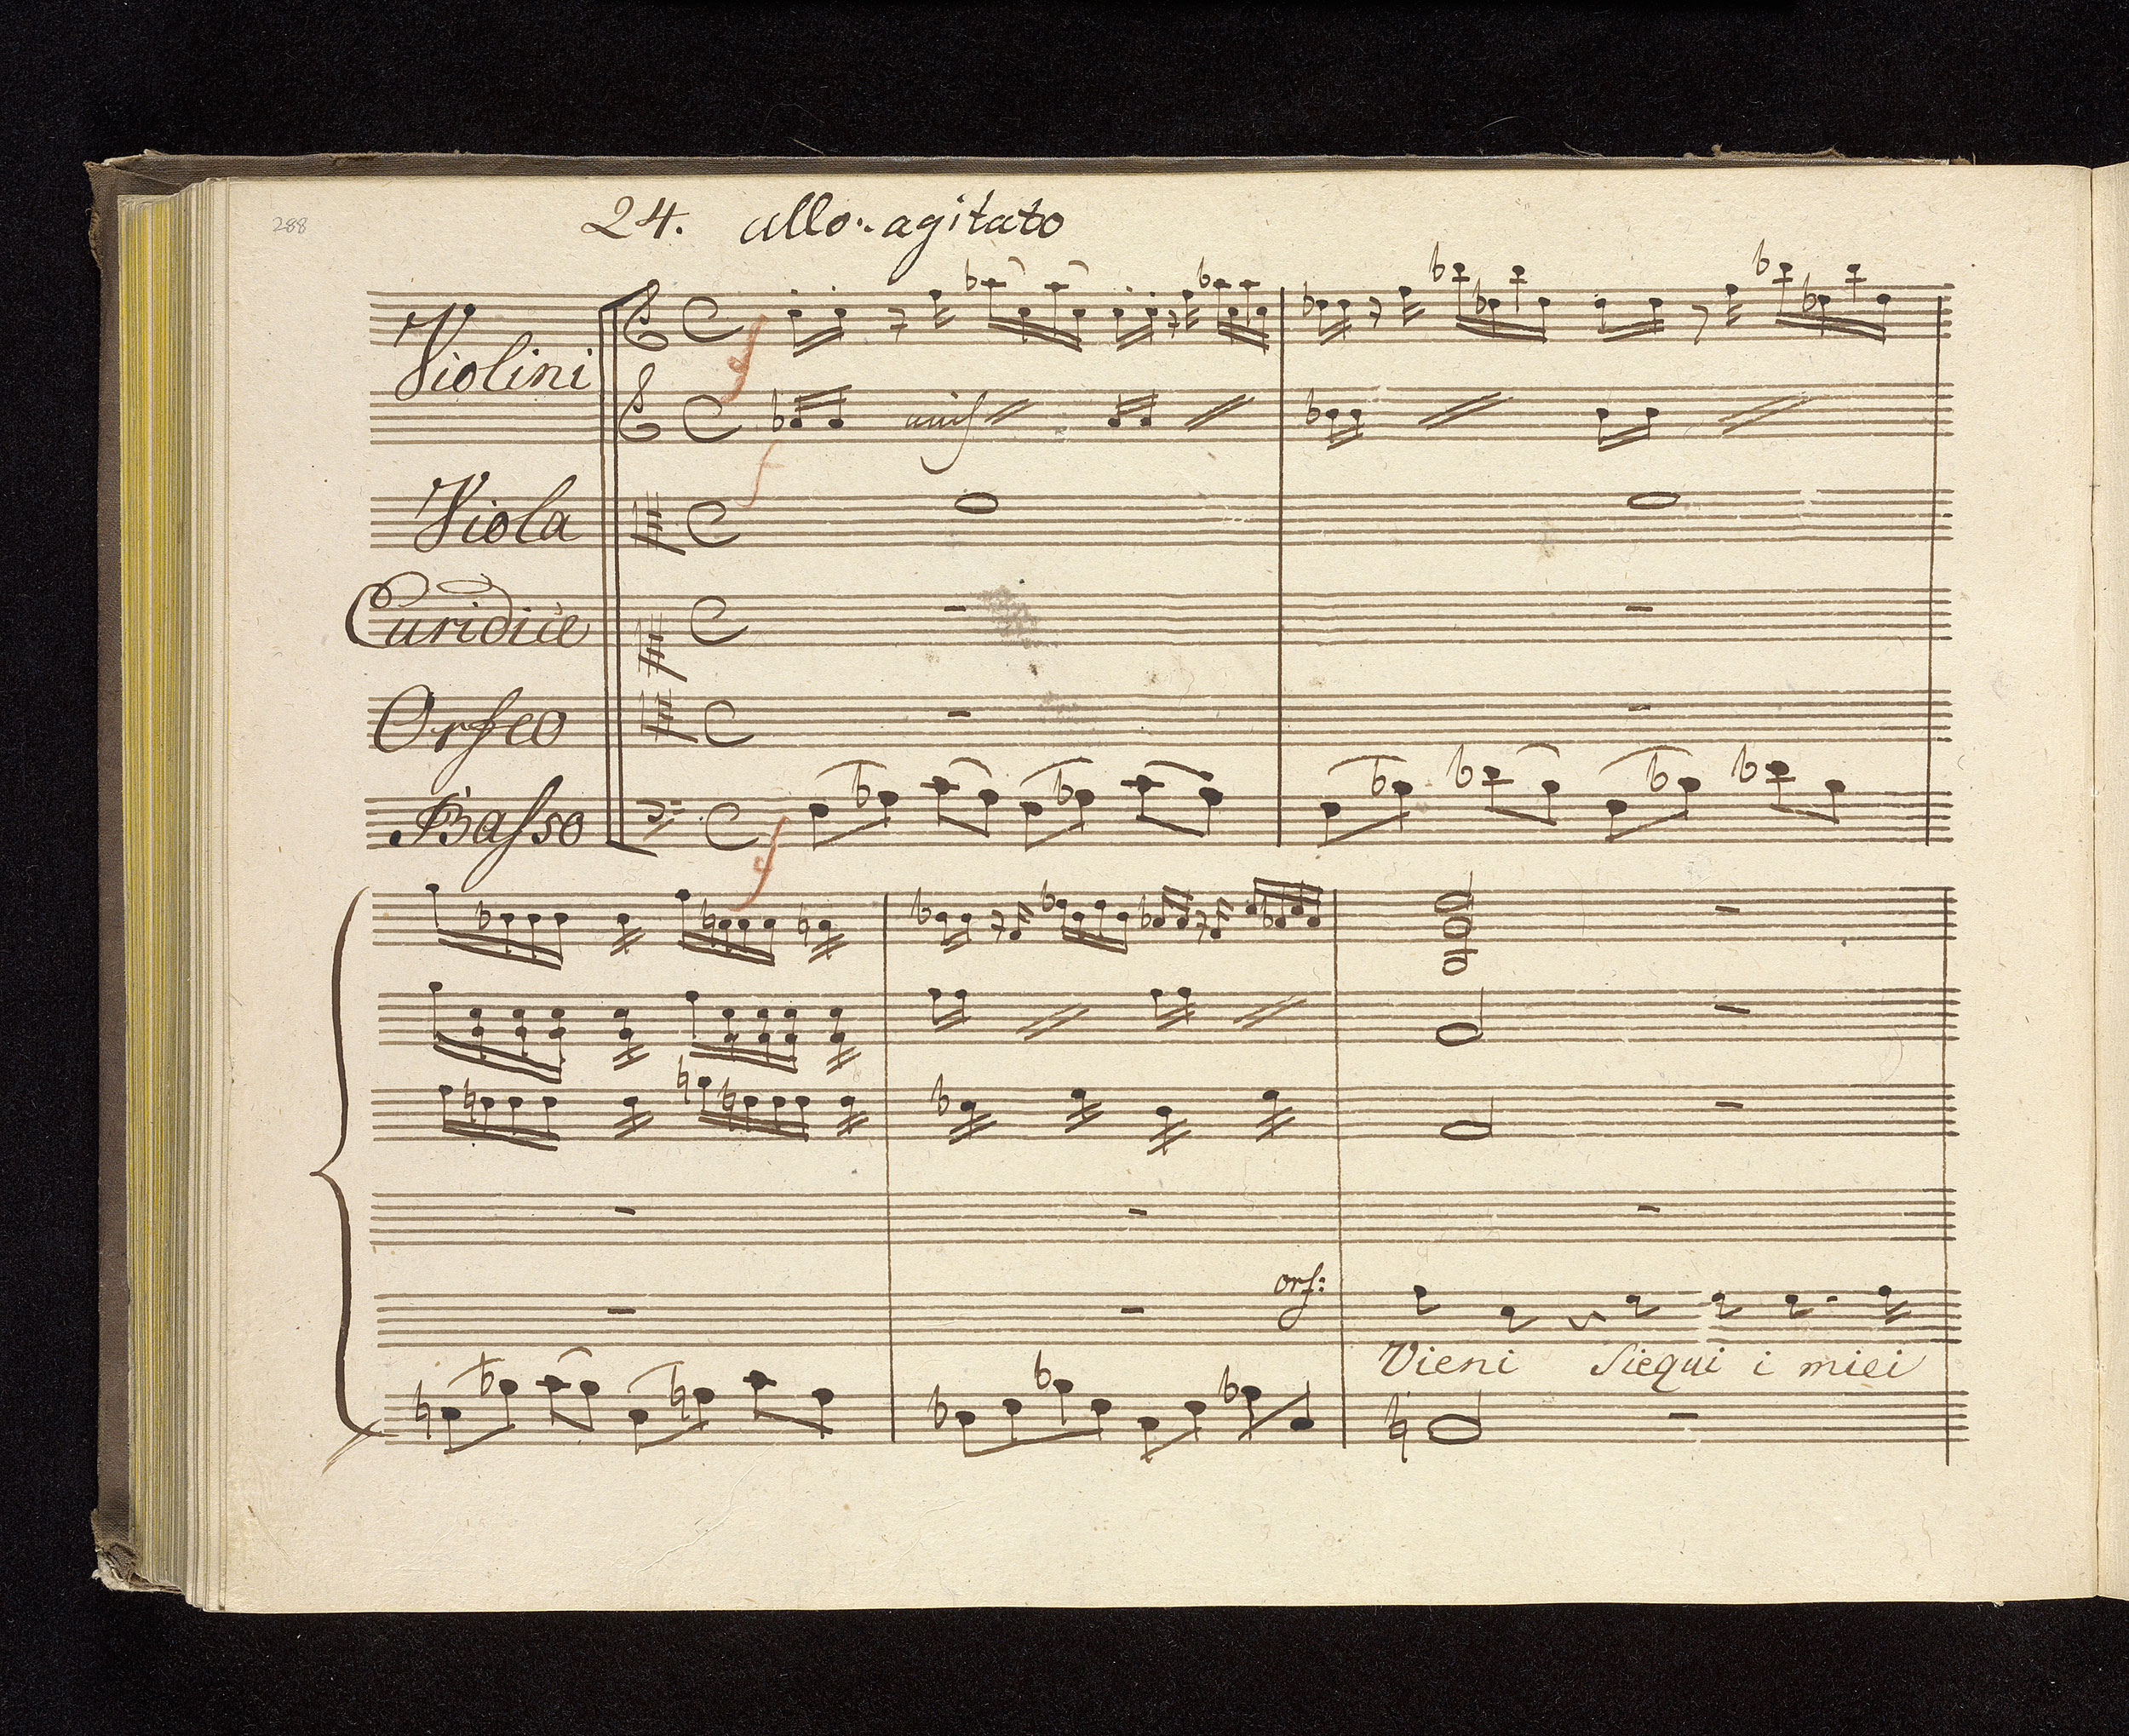 288
24. allo: agitato
Violini
f
unis
f
Viola
Euridice
Orfeo
Basso
f
orf:
Vieni Siequi i miei